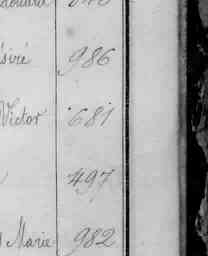 ésiré 986
Victor 681
497
Marie 982